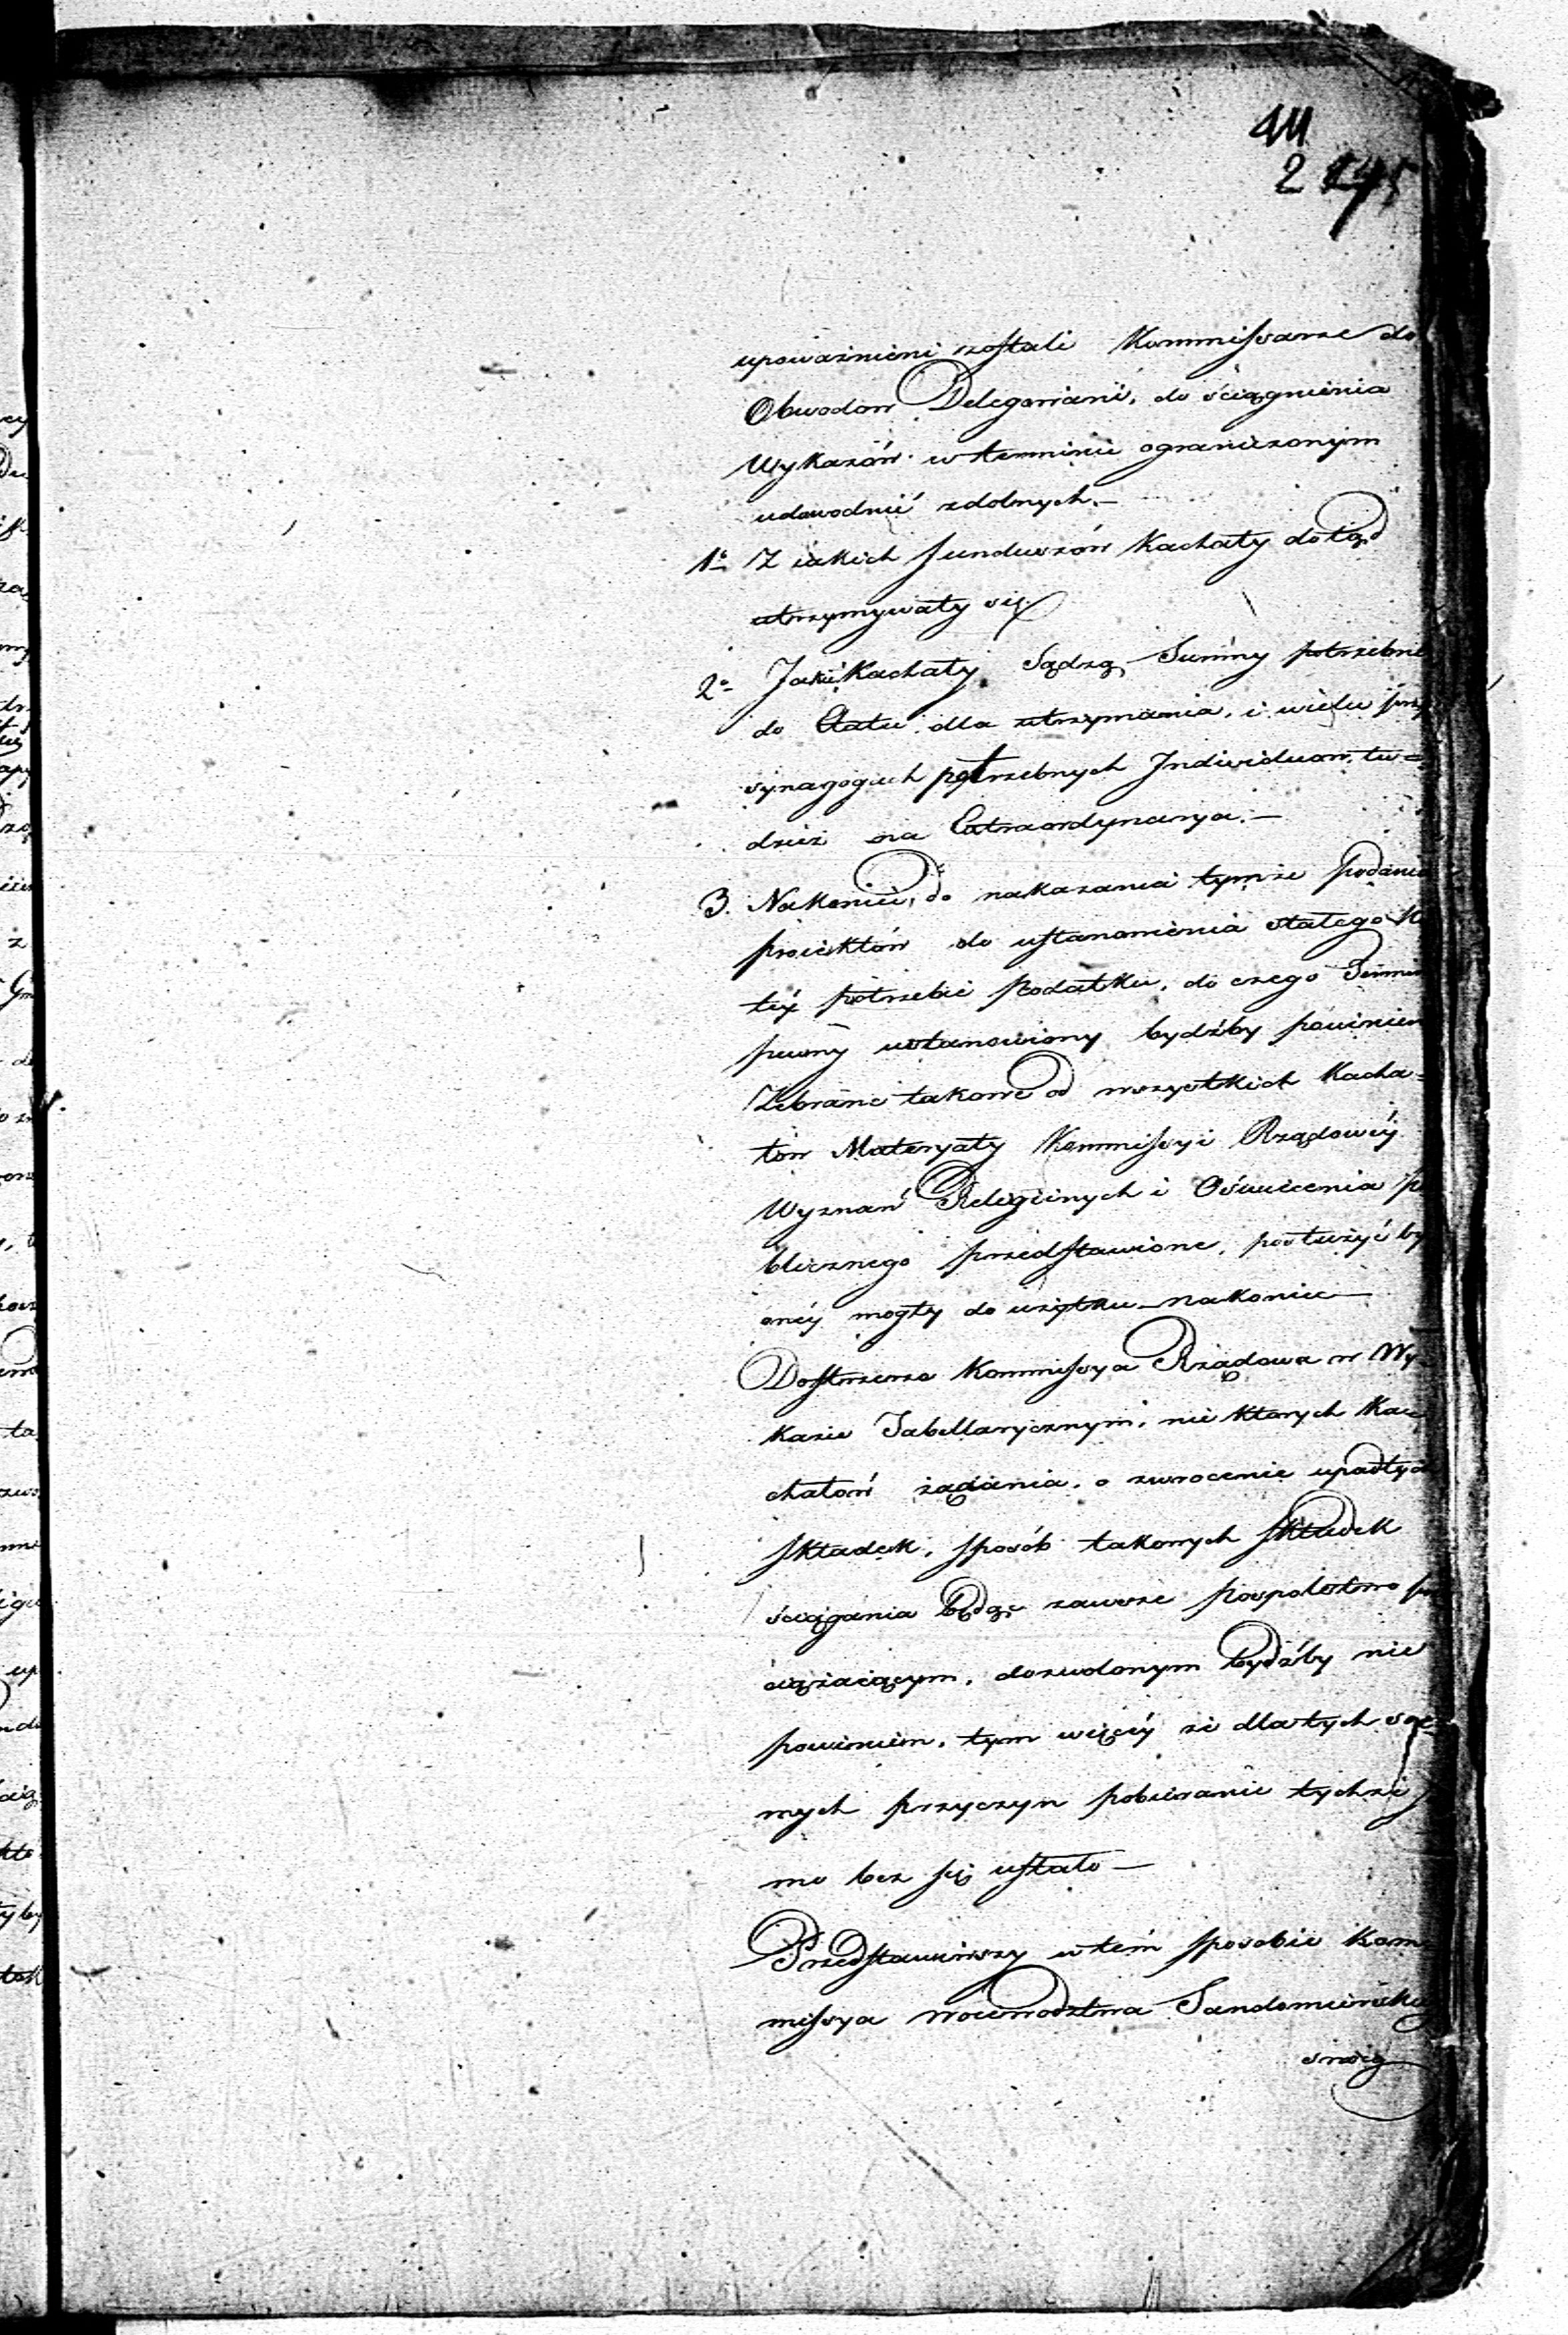 411
2
upoważnieni zostali Kommissarze do
Obwodow Delegowani, do ściągnienia
Wykazów w terminie ograniczonym
udowodnić zdolnych.—
1o Z iakich funduszów Kachały dotąd
utrzymywały się
2o Jakié Kachały Sądzą, Summy potrzebne
do Etatu dla utrzymania, i wielu przy
synagogach potrzebnych Individuow, tu=
dzież na Extraordynarya.—
3. Nakoniec, do nakazania tymże podania
proiektów do ustanowienia stałego K
téy potrzebie Podatku, do czego Termin
pewny ustanowiony bydźby powinien
Zebrane takowe od wszystkich Kacha=
łow Materyały Kommissyi Rządowéy
Wyznań Religiinych i Oświecenia p
blicznego przedstawione, posłużyć by
onéy mogły do użytku — nakoniec —
Dostrzerza Kommissya Rządowa w Wy=
kazie Tabellarycznym, nie ktorych Ka=
chałow żądania, o zwrocenie upadłych
składek, sposób takowych składek
ściągania będąc zawsze pospolstwo
ciążaiącym, dozwolonym bydźby nie
powinien, tym więcéy że dla tych sa=
mych przyczyn pobieranie tychże
mo bez się ustało —
Przedstawiwszy w tém sposobie Kom=
missya Woiewodztwa Sandomierskiego
swoią